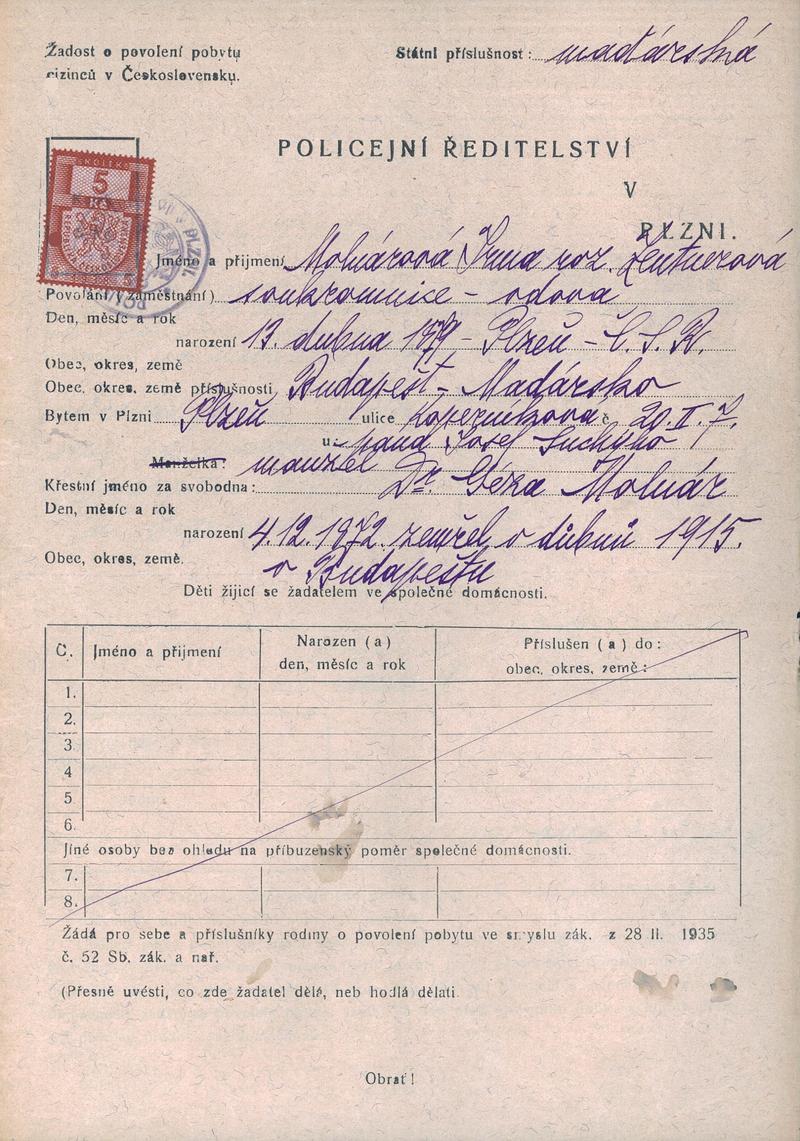 Žádost o povolení pobytu
cizinců v Československu.
Státní příslušnost: maďárská
POLICEJNÍ ŘEDITELSTVÍ
V
PLZNI.
KOLEK
5
Kč
5
Jméno a přijmení Molnárová Irma roz. Zentnerová
Povolání (zaměstnání) soukromnice - vdova
Den, měsíc a rok
narození 13. dubna 1879 - Plzeň - Č. S. R.
Obec, okres, země
Obec, okres, země příslušnosti Budapešt - Maďársko
Bytem v Plzni Plzeň ulice Koperníkova č. 20. II. 7.
u: pana Josef Suchýho
Manželka: manžel
Křestní jméno za svobodna: Dr. Géza Molnár
Den, měsíc a rok
narození 4.12.1872. zemřel v důbnů 1915.
Obec, okres, země.
v Budapeštu
Děti žijící se žadatelem ve společné domácnosti.
Č. Jméno a přijmení Narozen (a) den, měsíc a rok Příslušen (a) do: obec, okres, země:
1.
2.
3
4
5
6.
Jiné osoby bez ohledu na příbuzenský poměr společné domácnosti.
7.
8.
Žádá pro sebe a příslušníky rodiny o povolení pobytu ve smyslu zák. z 28 II. 1935
č. 52 Sb. zák. a nař.
(Přesně uvésti, co zde žadatel dělá, neb hodlá dělati.
Obrať!